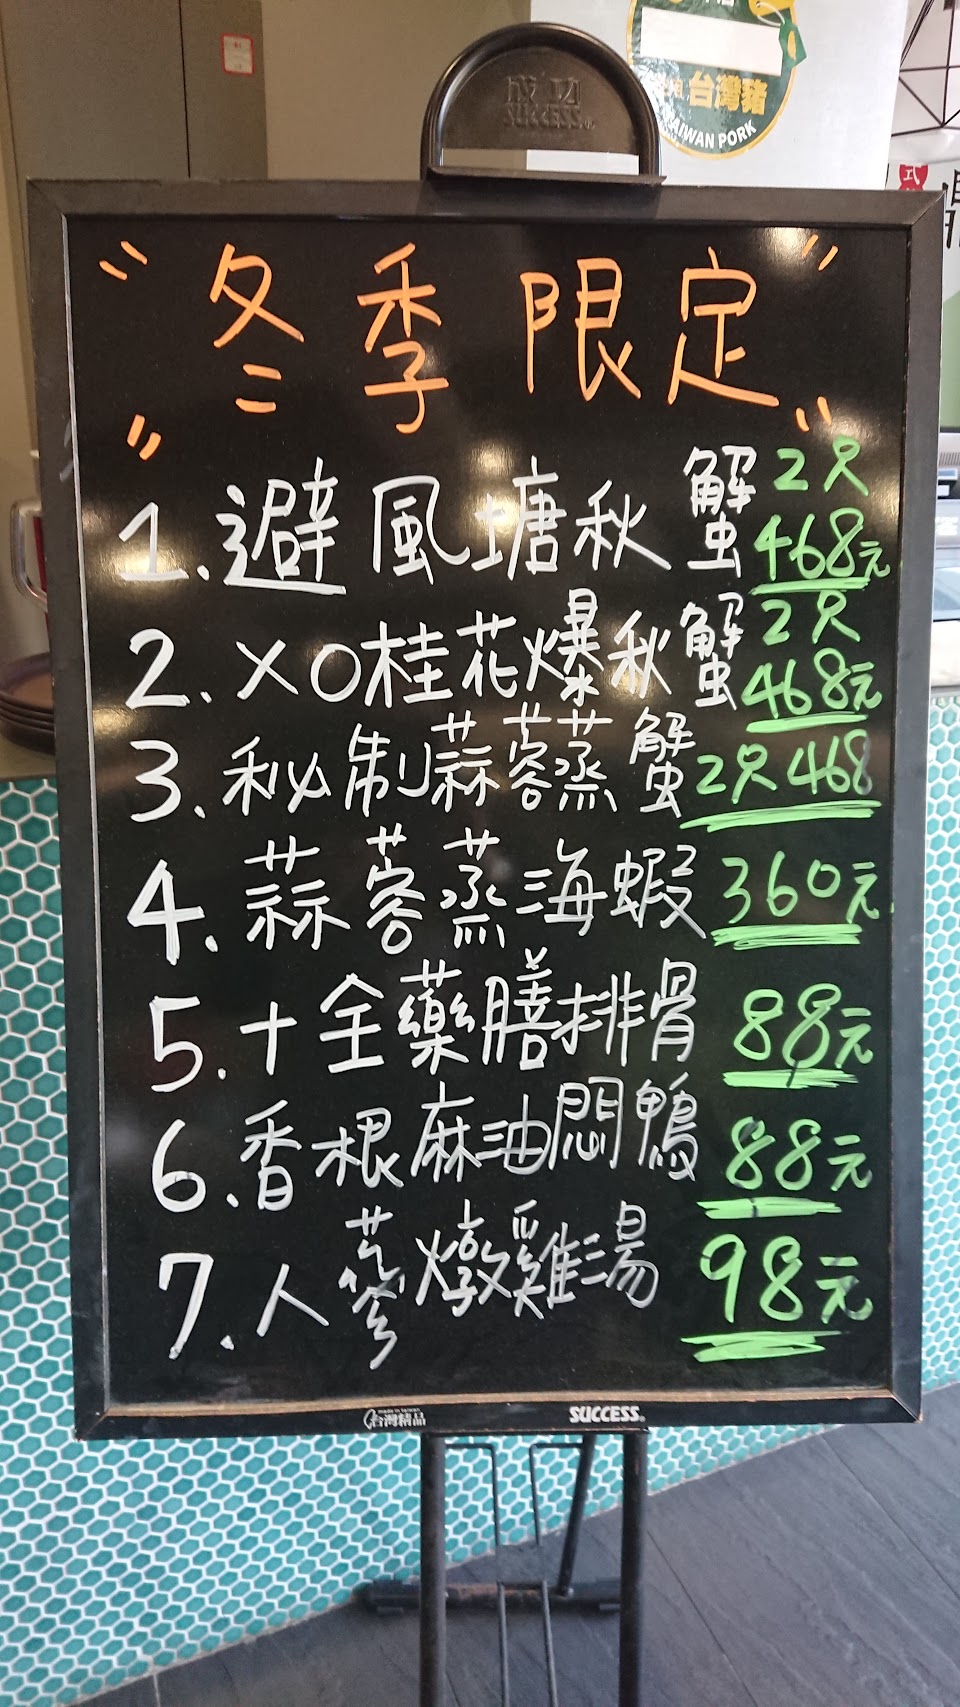 成功
SUCCESS
台灣豬
TAIWAN PORK
式
冬季限定
1.避風塘秋蟹 2只 468元
2.XO桂花爆秋蟹 2只 468元
3.秘制蒜蓉蒸蟹 2只 468
4.蒜蓉蒸海蝦 360元
5.十全藥膳排骨 88元
6.香根麻油悶鴨 88元
7.人蔘燉雞湯 98元
made in taiwan
台灣精品
SUCCESS